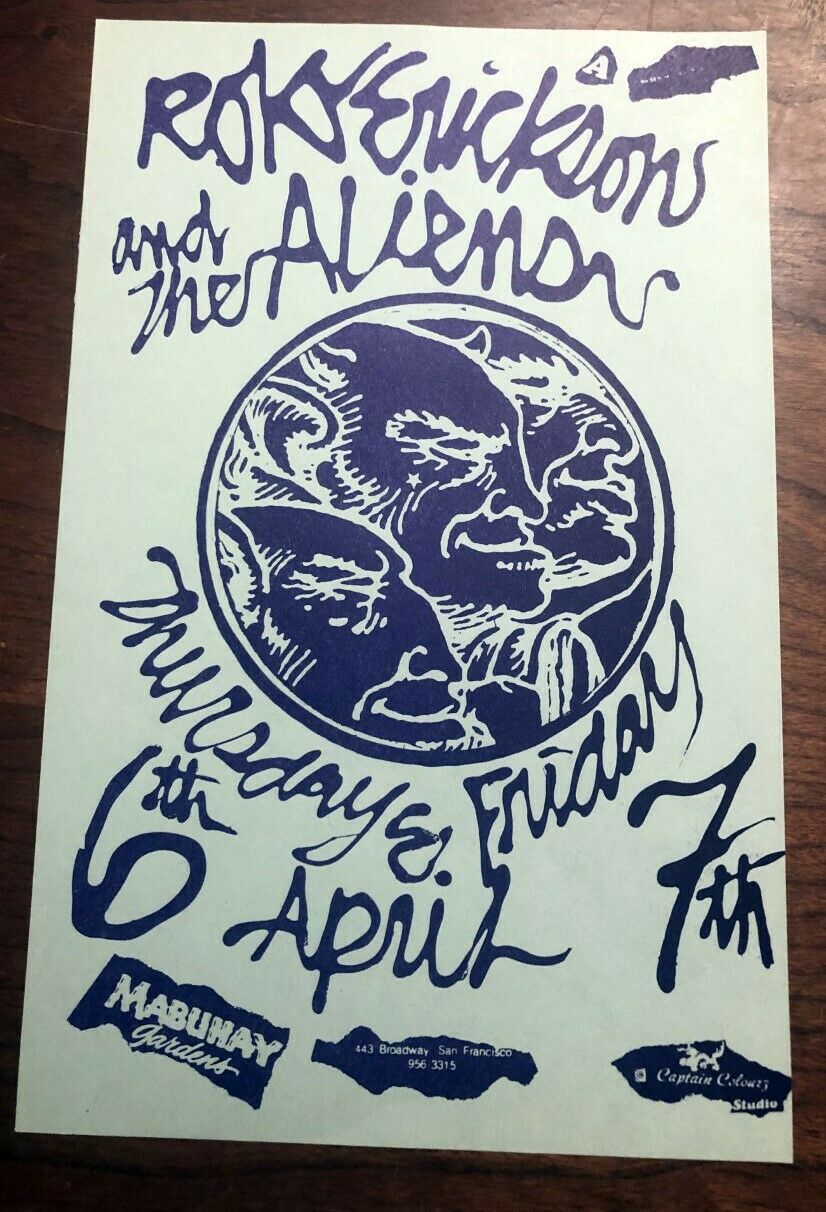 A
Roky Erickson
and the Aliens
Thursday & Friday
6th April 7th
MABUHAY
Gardens
443 Broadway San Francisco
956 3315
© Captain Colourz
Studio